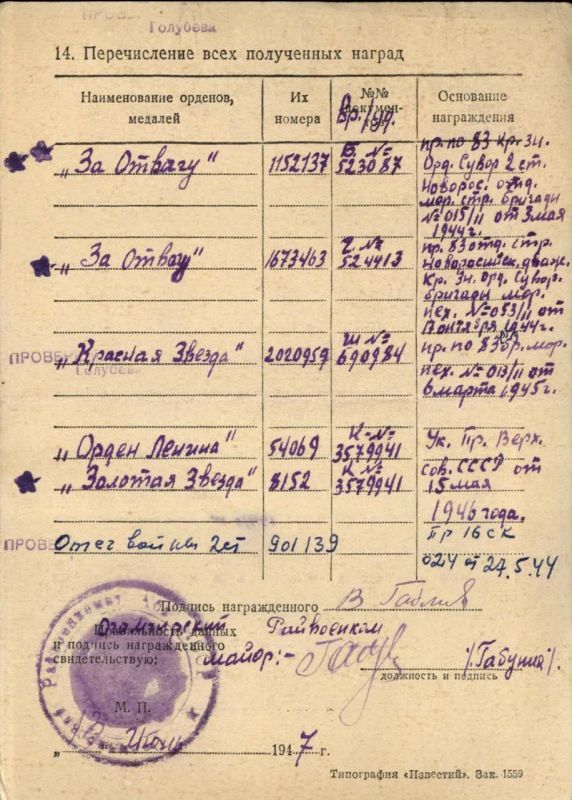 ПРОВЕ
Голубева
14. Перечисление всех полученных наград
Наименование орденов, медалей
Их номера
№№ докумен-
Вр./уд.
Основание награждения
„За Отвагу"
1152137
Б. №
523087
пр. по 83 Кр. Зн.
Орд. Сувор 2 ст.
Новорос. отд.
мор. стр. бригады
№ 015/II от 3 мая
1944 г.
„За Отвагу"
1673463
Г. №
524413
пр. 83 отд. стр.
Новоросийск. дваж.
Кр. Зн. орд. Сувор.
бригады мор.
пех. № 053/II от
17 октября 1944 г.
ПРОВЕ
Голубева
„Красная Звезда"
2020959
Ш №
690984
пр. по 83 бр. мор.
пех. № 013/II от
6 марта 1945 г.
„Орден Ленина"
54069
К-№
3579941
Ук. Пр. Верх.
„Золотая Звезда"
8152
К №
3579941
сов. СССР от
15 мая
1946 года.
ПРОВЕ
Отеч войны 2 ст
901139
Пр 16 СК
024 от 27.5.44
Подпись награжденного
Правильность данных
и подпись награжденного
свидетельствую:
Очамчирский Райвоенком
Майор:-
/Габуния/.
должность и подпись
М. П.
„ 1947 г.
Типография «Известий». Зак. 1559